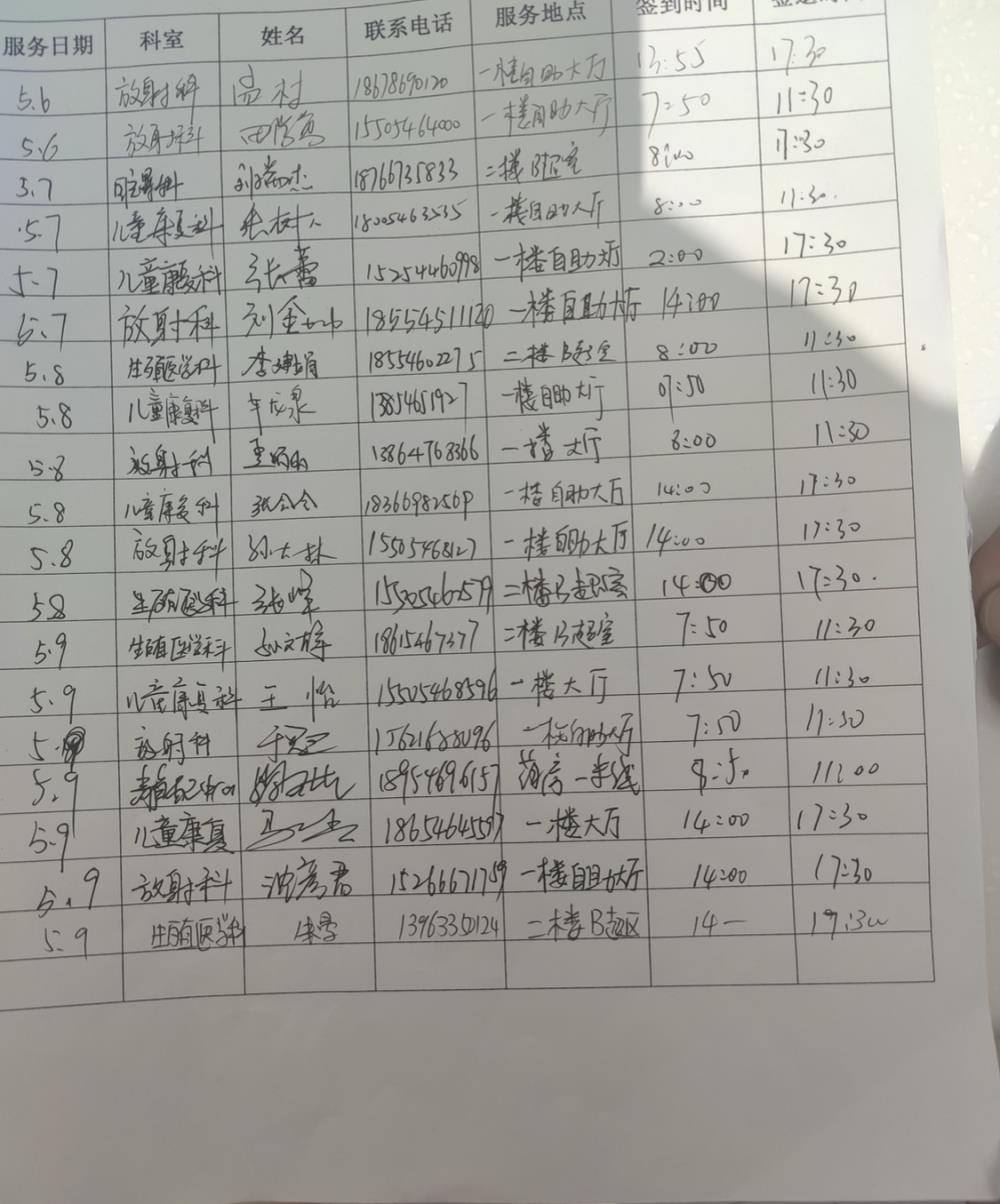 服务日期 科室 姓名 联系电话 服务地点 签到时间
5.6 放射科 18678690120 一楼自助大厅 13:55 17:30
5.6 放射科 15505464000 一楼自助大厅 7:50 11:30
5.7 18766735833 二楼B超室 8:00 17:30
5.7 儿童康复科 张树人 18005463535 一楼自助大厅 8:00 11:30.
5.7 儿童康复科 张蕾 15254460998 一楼自助大厅 2:00 17:30
5.7 放射科 刘金 18554511120 一楼自助大厅 14:00 17:30
5.8 生殖医学科 李建娟 18554602275 二楼B超室 8:00 11:30
5.8 儿童康复科 13854651927 一楼自助大厅 07:50 11:30
5.8 放射科 13864768366 一楼大厅 8:00 11:30
5.8 儿童康复科 张会会 1836698256P 一楼自助大厅 14:00 17:30
5.8 放射科 孙大林 15505468127 一楼自助大厅 14:00 17:30
5.8 生殖医学科 张峰 二楼B超室 14:00 17:30.
5.9 生殖医学科 18615467377 二楼B超室 7:50 11:30
5.9 儿童康复科 王怡 15505468596 一楼大厅 7:50 11:30
5.9 放射科 15621688096 一楼自助大厅 7:50 11:30
5.9 18954696157 8:50 11:00
5.9 儿童康复 18654645597 一楼大厅 14:00 17:30
5.9 放射科 池彦君 15266671759 一楼自助大厅 14:00 17:30
5.9 生殖医学科 13963350124 二楼B超区 14一 17:30